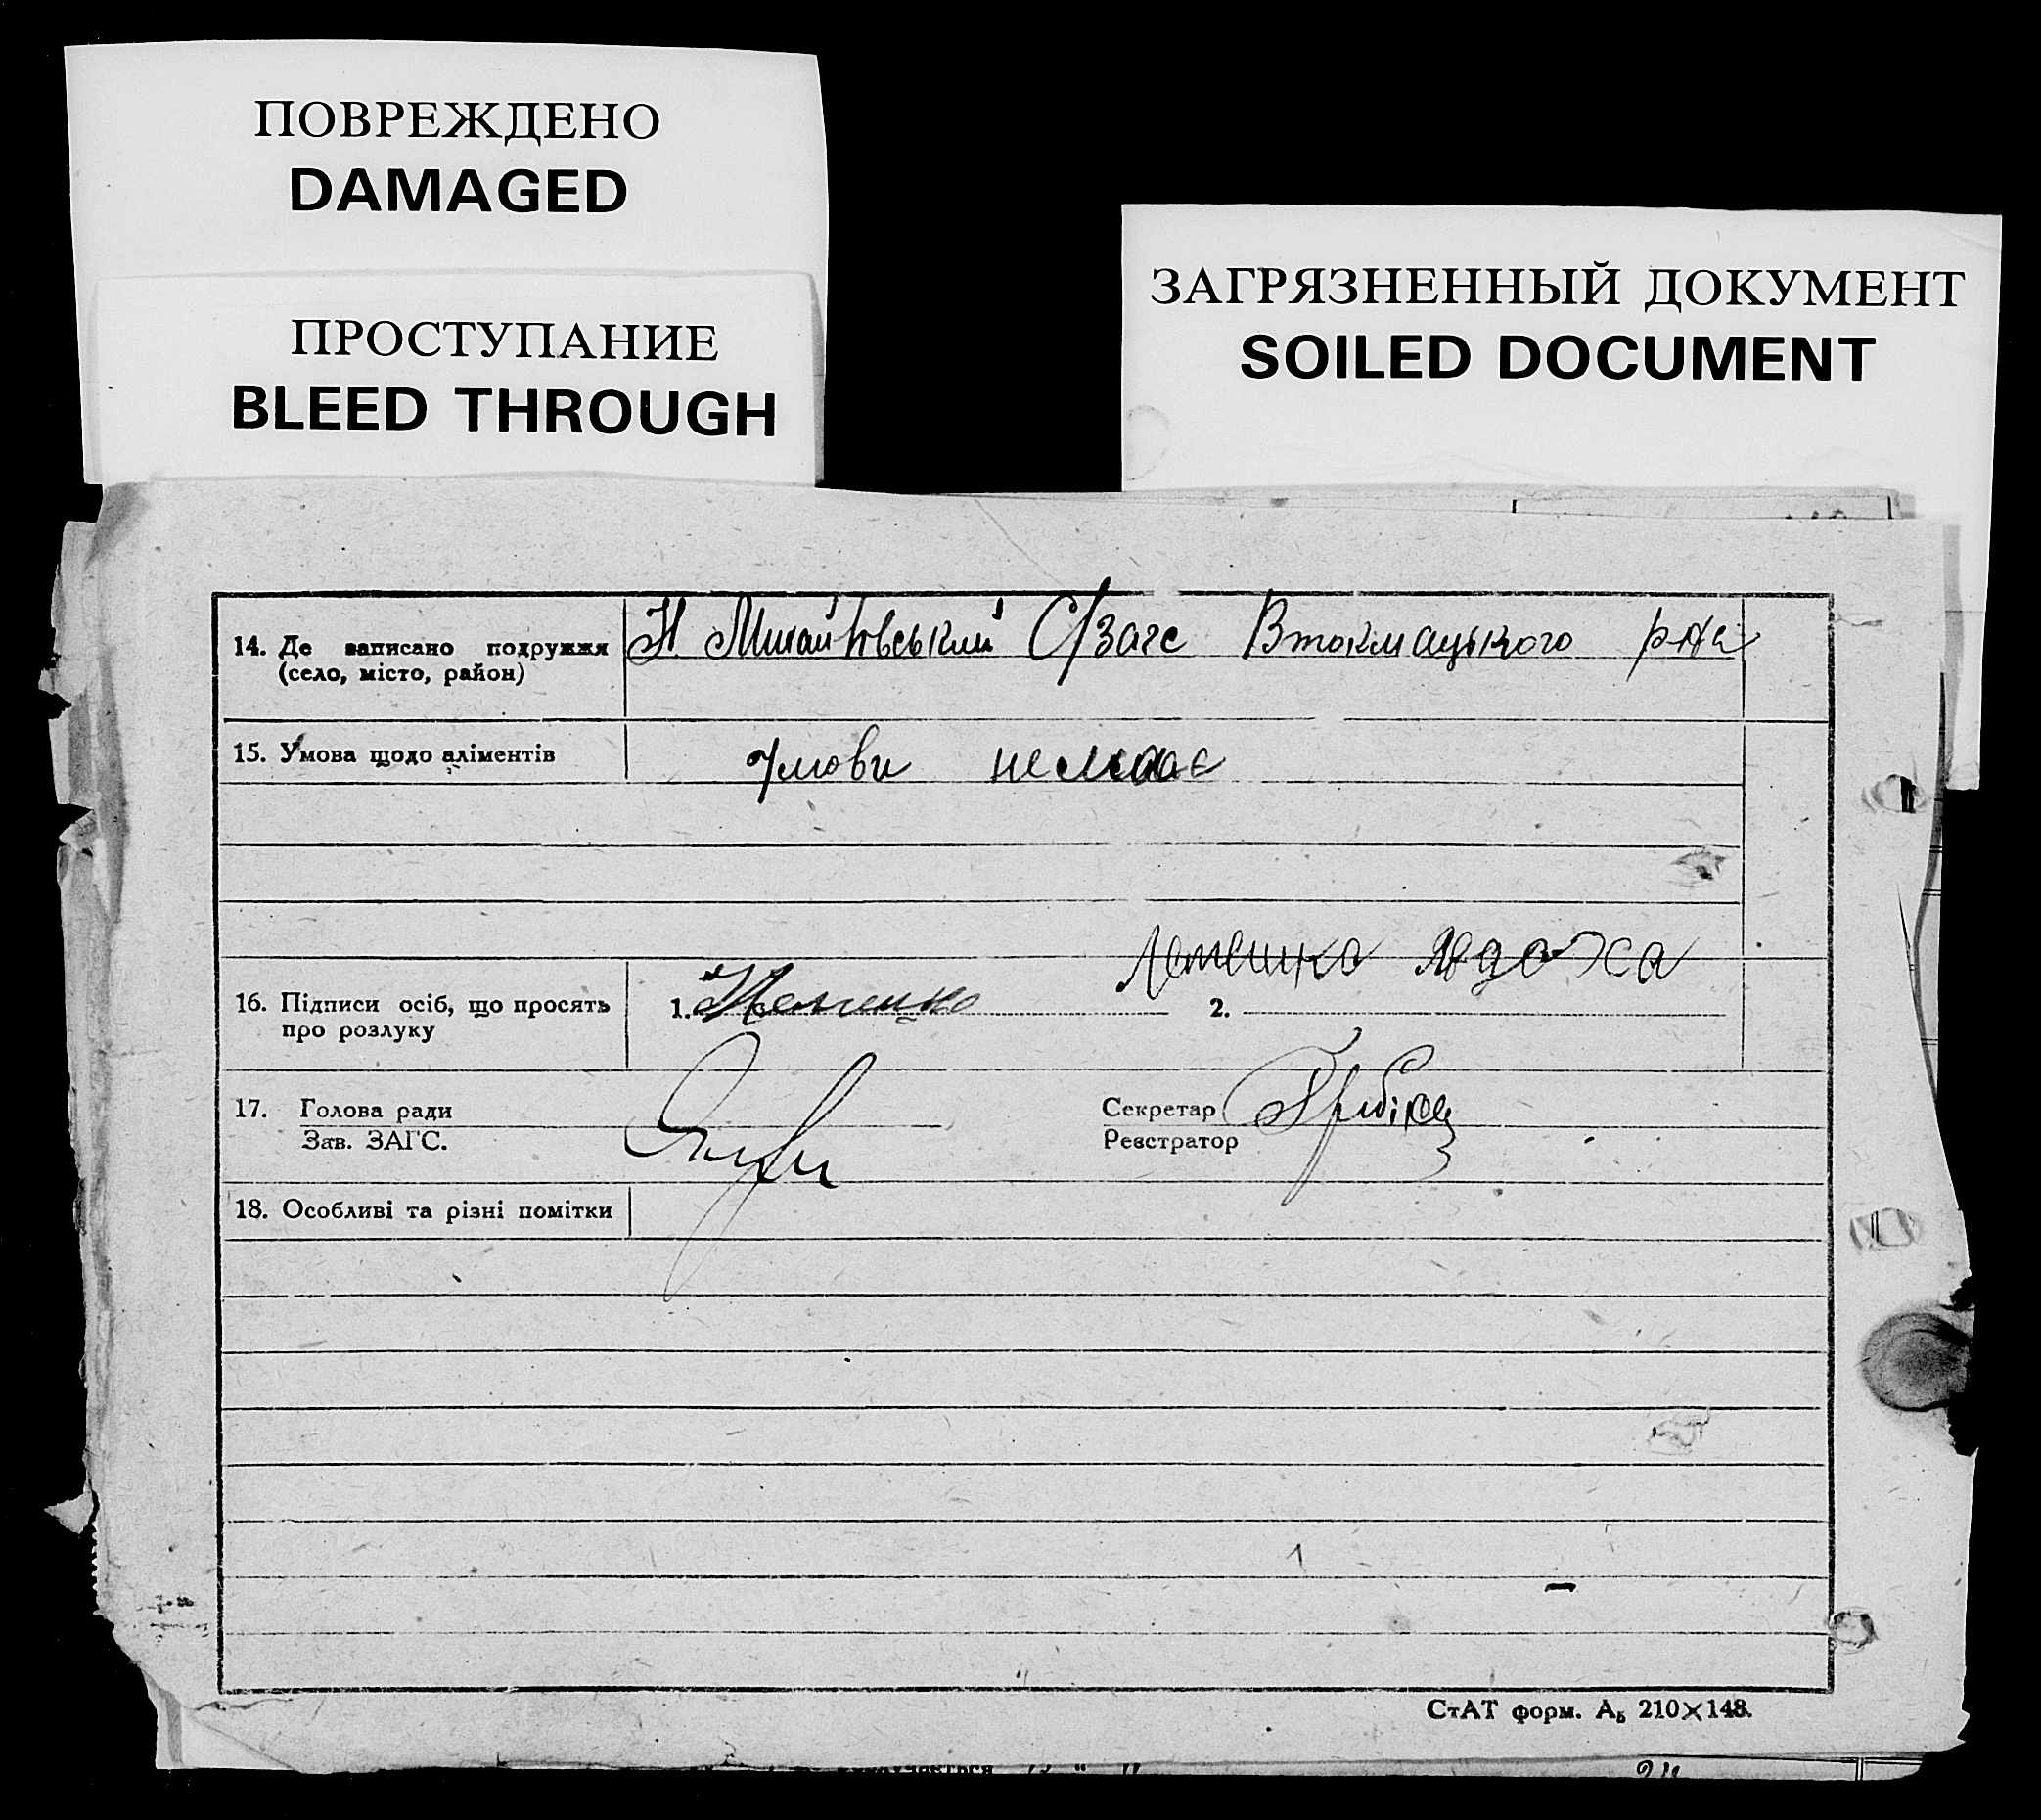 ПОВРЕЖДЕНО
DAMAGED
ПРОСТУПАНИЕ
BLEED THROUGH
ЗАГРЯЗНЕННЫЙ ДОКУМЕНТ
SOILED DOCUMENT
14. Де записано подружжя Н. Михайлівський С/загс Втокмацького р-на
(село, місто, район)
15. Умова щодо аліментів Умови немає
16. Підписи осіб, що просять 1. 2. Лемешка Явдоха
про розлуку
17. Голова ради Секретар
Зав. ЗАГС. Реєстратор
18. Особливі та різні помітки
СтАТ форм. А₅ 210×148.